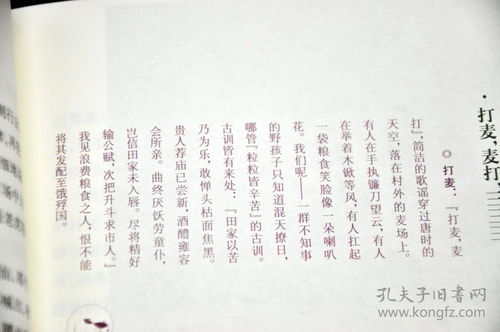 ·打麦，麦打
◎打麦：『打麦，麦
打』，简洁的歌谣穿过唐时的
天空，落在村外的麦场上。
有人在手执镰刀望云，有人
在举着木锨等风，有人扛起
一袋粮食笑脸像一朵喇叭
花。我们呢——一群不知事
的野孩子只知道混天撩日，
哪管『粒粒皆辛苦』的古训。
古训皆有来处：『田家以苦
乃为乐，敢惮头枯面焦黑。
贵人荐庙已尝新，酒醴雍容
会所亲。曲终厌饫劳童仆，
岂信田家未入唇。尽将精好
输公赋，次把升斗求市人。』
我见浪费粮食之人，恨不能
将其发配至饿殍国。
孔夫子旧书网
www.kongfz.com